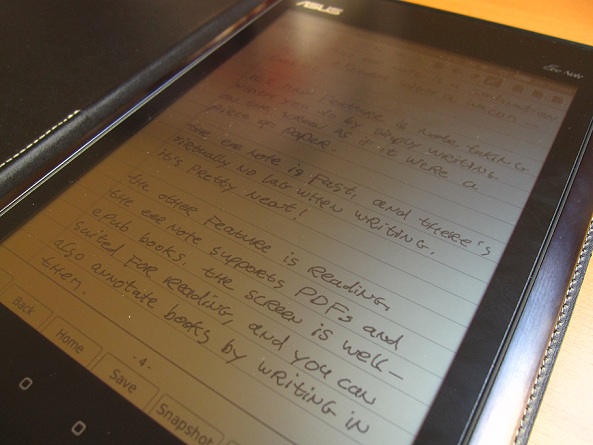 ASUS
Eee Note
feature is note taking
which you do by simply writing
on the screen as if it were a
piece of paper.
The eee note is fast, and there's
virtually no lag when writing.
It's pretty neat!
the other feature is reading.
the eee note supports PDFs and
epub books. the screen is well-
suited for reading, and you can
also annotate books by writing in
them.
- 4 -
Back
Home
Save
Snapshot